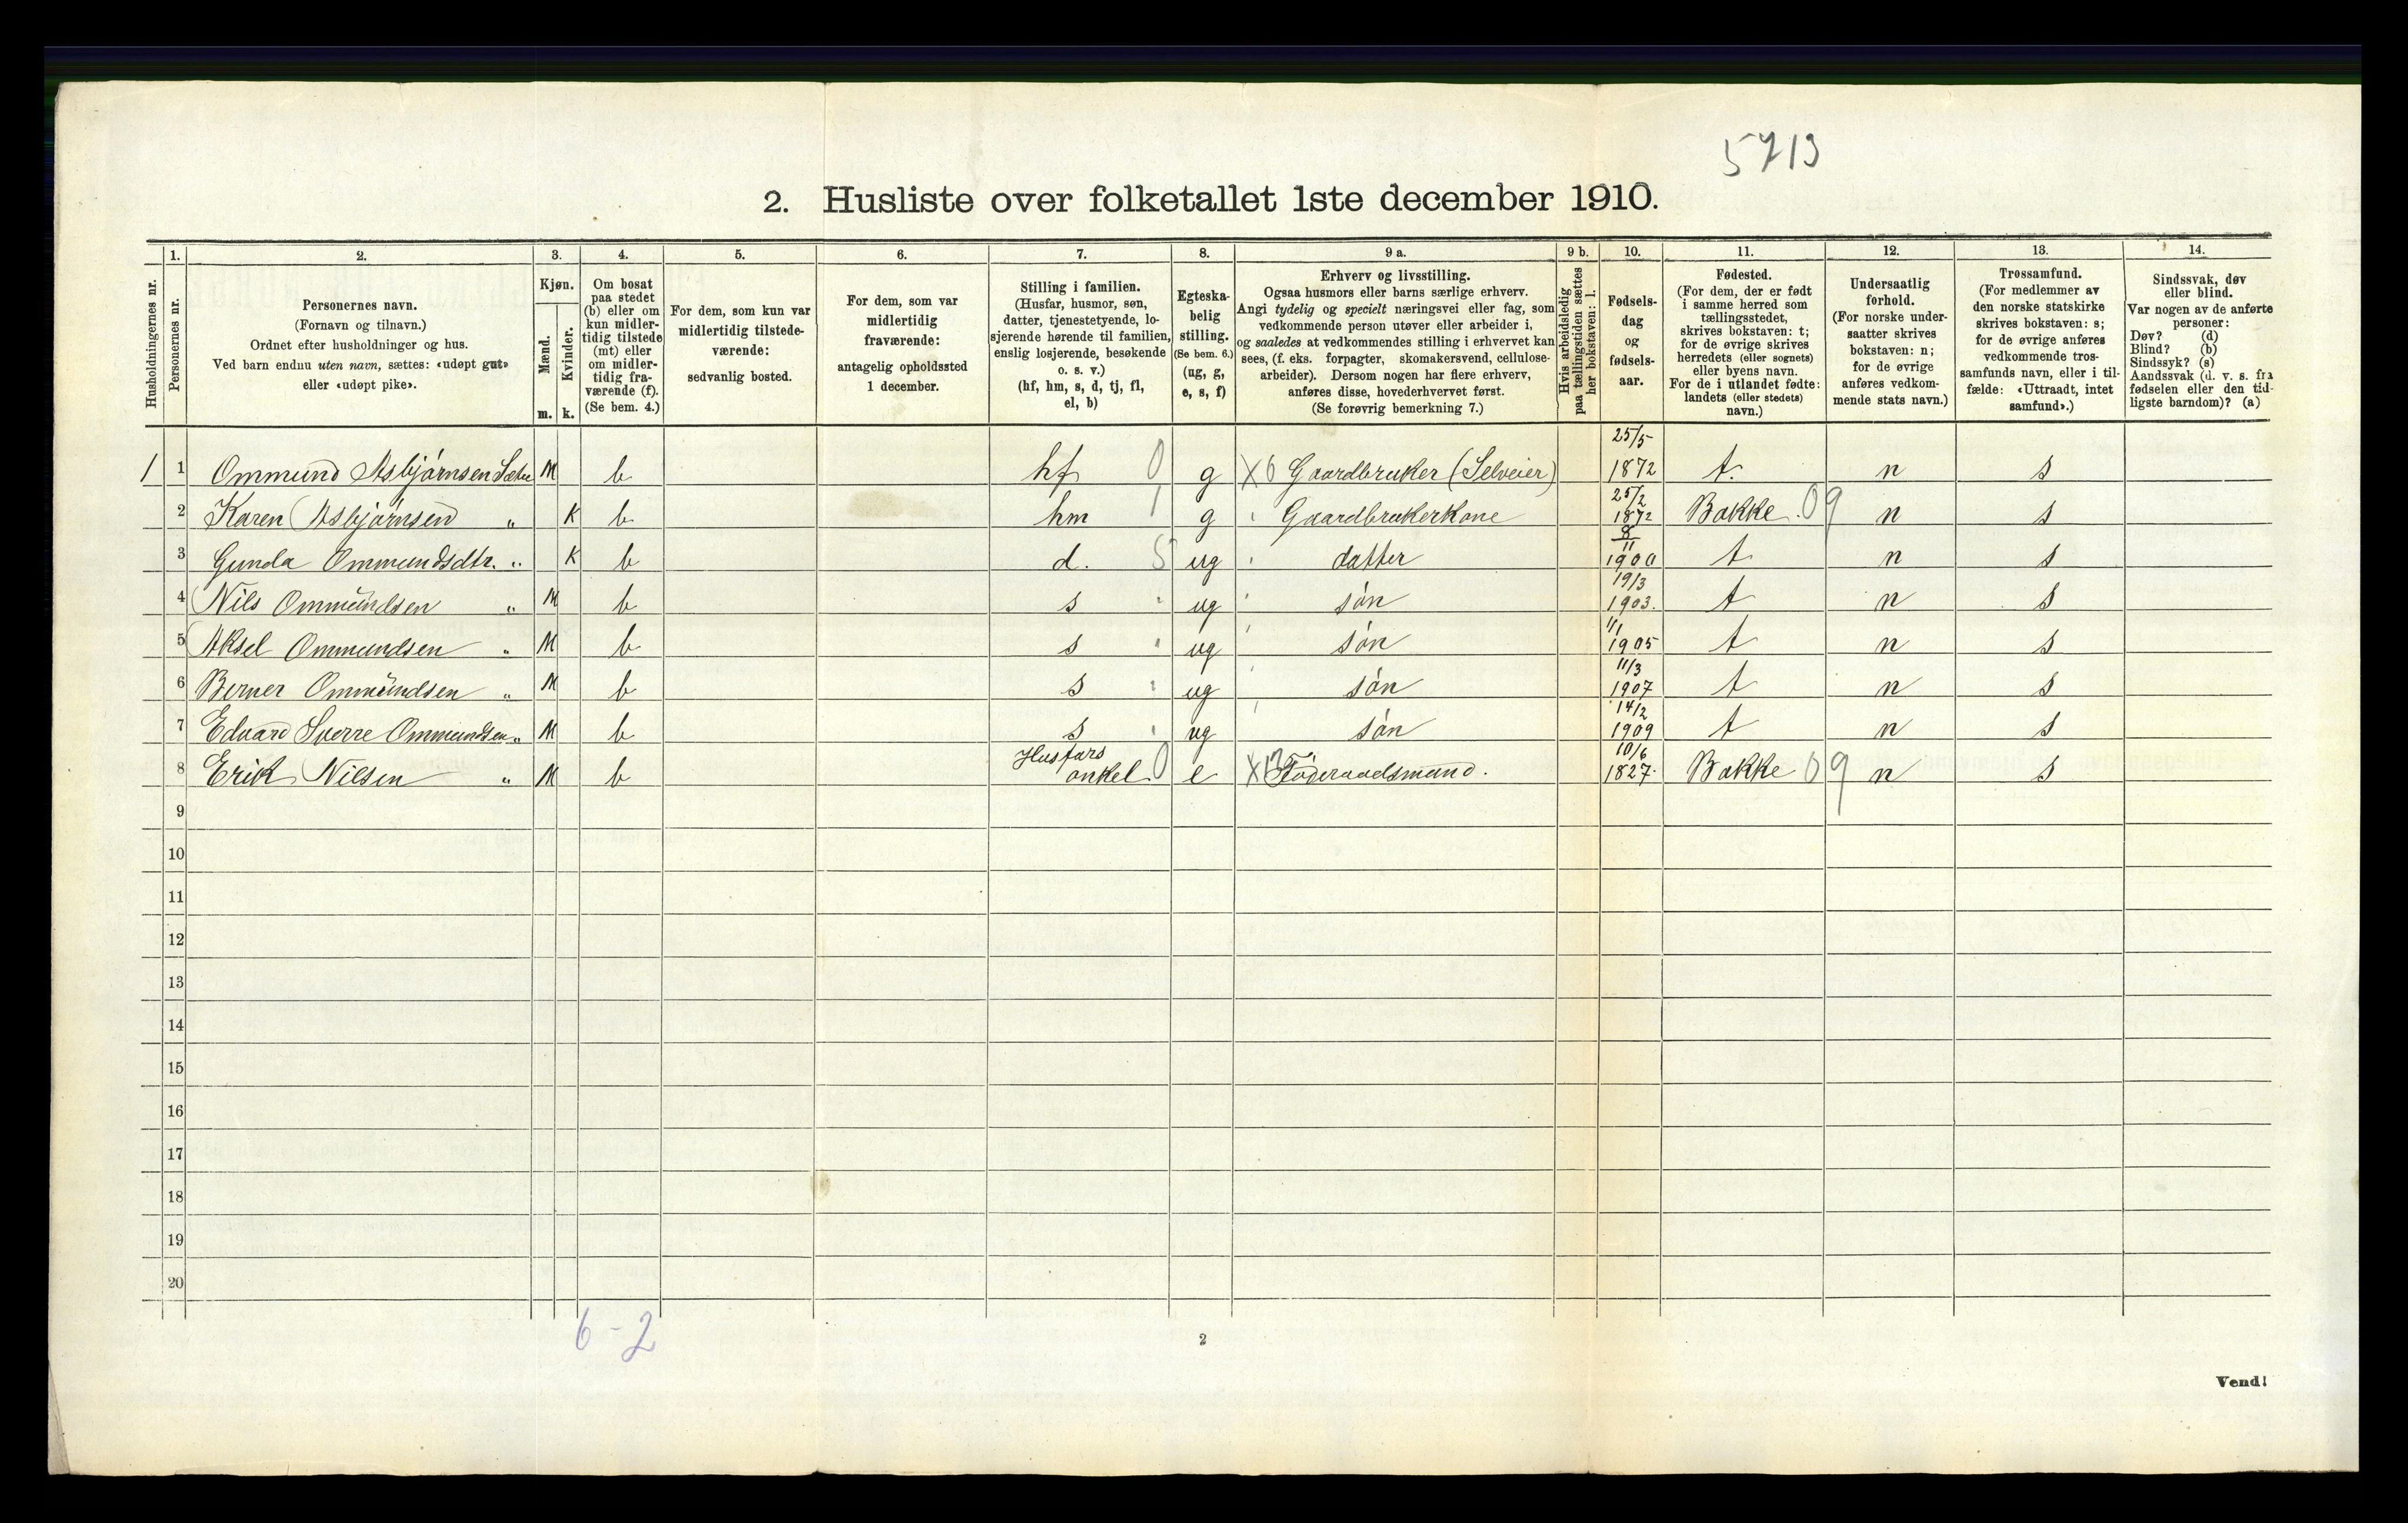 5713
2. Husliste over folketallet 1ste december 1910.
Husholdningernes nr.
1.
Personernes nr.
2.
Personernes navn.
(Fornavn og tilnavn.)
Ordnet efter husholdninger og hus.
Ved barn endnu uten navn, sættes: «udøpt gut»
eller «udøpt pike».
3.
Kjøn.
Mænd.
m.
Kvinder.
k.
4.
Om bosat
paa stedet
(b) eller om
kun midler-
tidig tilstede
(mt) eller
om midler-
tidig fra-
værende (f).
(Se bem. 4.)
5.
For dem, som kun var
midlertidig tilstede-
værende:
sedvanlig bosted.
6.
For dem, som var
midlertidig
fraværende:
antagelig opholdssted
1 december.
7.
Stilling i familien.
(Husfar, husmor, søn,
datter, tjenestetyende, lo-
sjerende hørende til familien,
enslig losjerende, besøkende
o. s. v.)
(hf, hm, s, d, tj, fl,
el, b)
8.
Egteska-
belig
stilling.
(Se bem. 6.)
(ug, g,
e, s, f)
9 a.
Erhverv og livsstilling.
Ogsaa husmors eller barns særlige erhverv.
Angi tydelig og specielt næringsvei eller fag, som
vedkommende person utøver eller arbeider i,
og saaledes at vedkommendes stilling i erhvervet kan
sees, (f. eks. forpagter, skomakersvend, cellulose-
arbeider). Dersom nogen har flere erhverv,
anføres disse, hovederhvervet først.
(Se forøvrig bemerkning 7.)
9 b.
Hvis arbeidsledig
paa tællingstiden sættes
her bokstaven: l.
10.
Fødsels-
dag
og
fødsels-
aar.
11.
Fødested.
(For dem, der er født
i samme herred som
tællingsstedet,
skrives bokstaven: t;
for de øvrige skrives
herredets (eller sognets)
eller byens navn.
For de i utlandet fødte:
landets (eller stedets)
navn.)
12.
Undersaatlig
forhold.
(For norske under-
saatter skrives
bokstaven: n;
for de øvrige
anføres vedkom-
mende stats navn.)
13.
Trossamfund.
(For medlemmer av
den norske statskirke
skrives bokstaven: s;
for de øvrige anføres
vedkommende tros-
samfunds navn, eller i til-
fælde: «Uttraadt, intet
samfund».)
14.
Sindssvak, døv
eller blind.
Var nogen av de anførte
personer:
Døv? (d)
Blind? (b)
Sindssyk? (s)
Aandssvak (d. v. s. fra
fødselen eller den tid-
ligste barndom)? (a)
1 1 Ommund Asbjørnsen M b hf 0 g X6 Gaardbruker (Selveier) 25/5 1872 t. n s
2 Karen Asbjørnsen " K b hm 1 g " Gaardbrukerkone 25/2 1872 Bakke. 09 n s
3 Gunda Ommundsdtr. " K b d. 5 ug " datter 8/11 1900 t n s
4 Nils Ommundsen " M b s " ug " søn 19/3 1903. t n s
5 Aksel Ommundsen " M b s " ug " søn 1/1 1905 t n s
6 Berner Ommundsen " M b s " ug " søn 11/3 1907 t n s
7 Edvard Sverre Ommundsen " M b s " ug " søn 14/2 1909 t n s
8 Erik Nilsen " M b Husfars onkel 0 e Føderaadsmand. 10/6 1827. Bakke 09 n s
9
10
11
12
13
14
15
16
17
18
19
20
6-2
2
Vend!